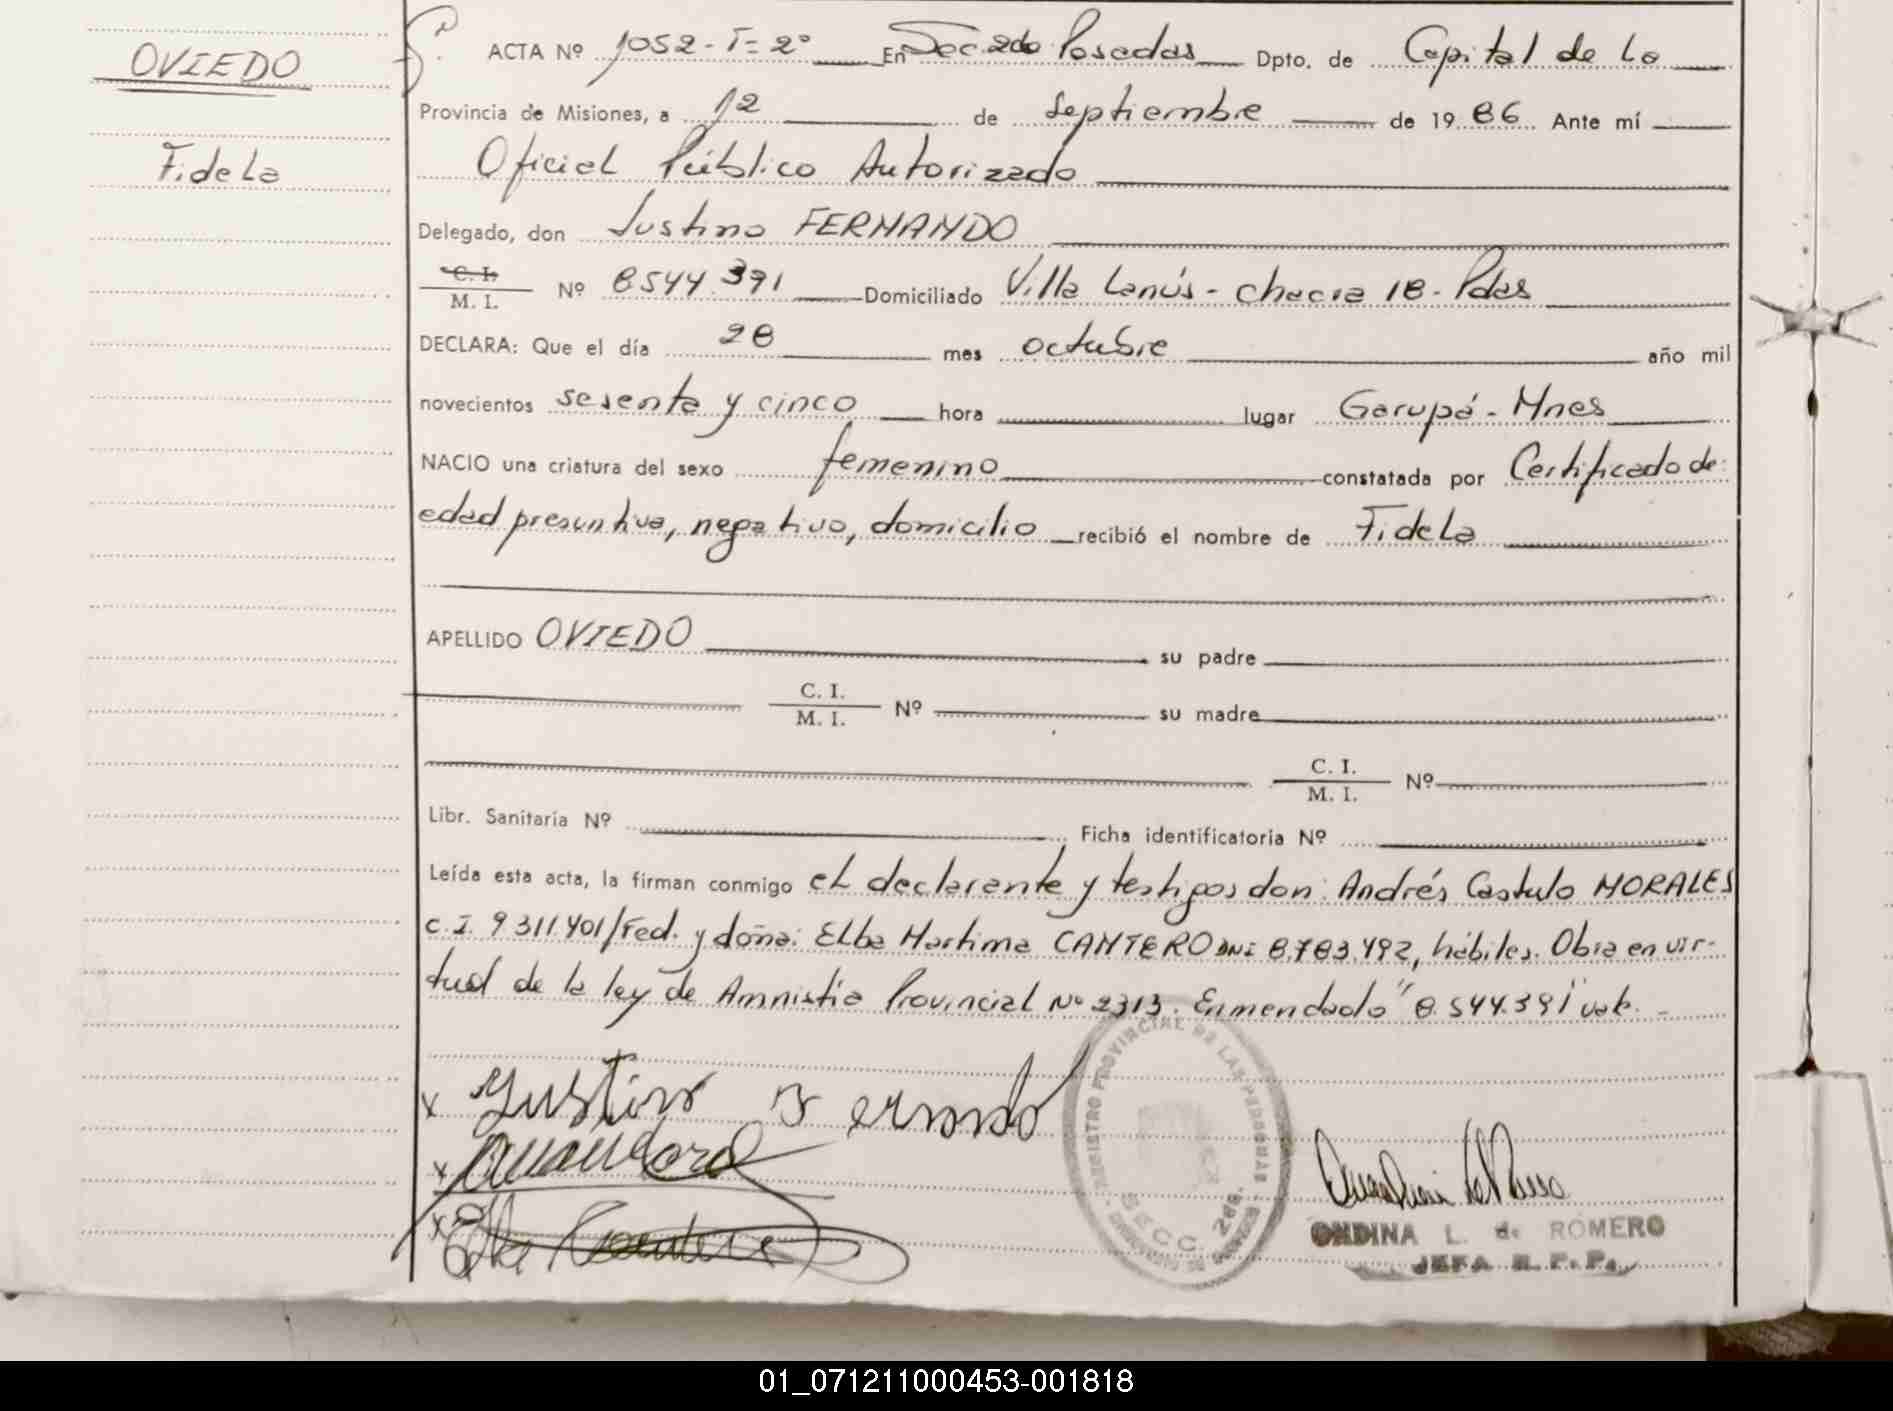 OVIEDO
Fidela
ACTA Nº 1052-T=2º En Secc. 2da Posadas Dpto. de Capital de la
Provincia de Misiones, a 12 de septiembre de 1986 Ante mí
Oficial Público Autorizado
Delegado, don Justino FERNANDO
C. I.
M. I. Nº 8544.391 Domiciliado Villa Lanús - chacra 18 - Pdas
DECLARA: Que el día 28 mes octubre año mil
novecientos sesenta y cinco hora lugar Garupá - Mnes
NACIO una criatura del sexo femenino constatada por Certificado de:
edad presuntiva, negativo, domicilio recibió el nombre de Fidela
APELLIDO OVIEDO su padre
C. I.
M. I. Nº su madre
C. I.
M. I. Nº
Libr. Sanitaria Nº Ficha identificatoria Nº
Leída esta acta, la firman conmigo el declarante y testigos don: Andrés Castulo MORALES
C.I. 9311401/Fed. y doña: Elba Martima CANTERO DNI 8.783.492, hábiles. Obra en vir-
tud de la ley de Amnistía Provincial Nº 2313. Enmendado "8.544.391" vale.-
x Justino Fernando
x
x Elba Cantero
REGISTRO PROVINCIAL DE LAS PERSONAS
SECC. 2da.
ONDINA L. de ROMERO
JEFA R. P. P.
01_071211000453-001818